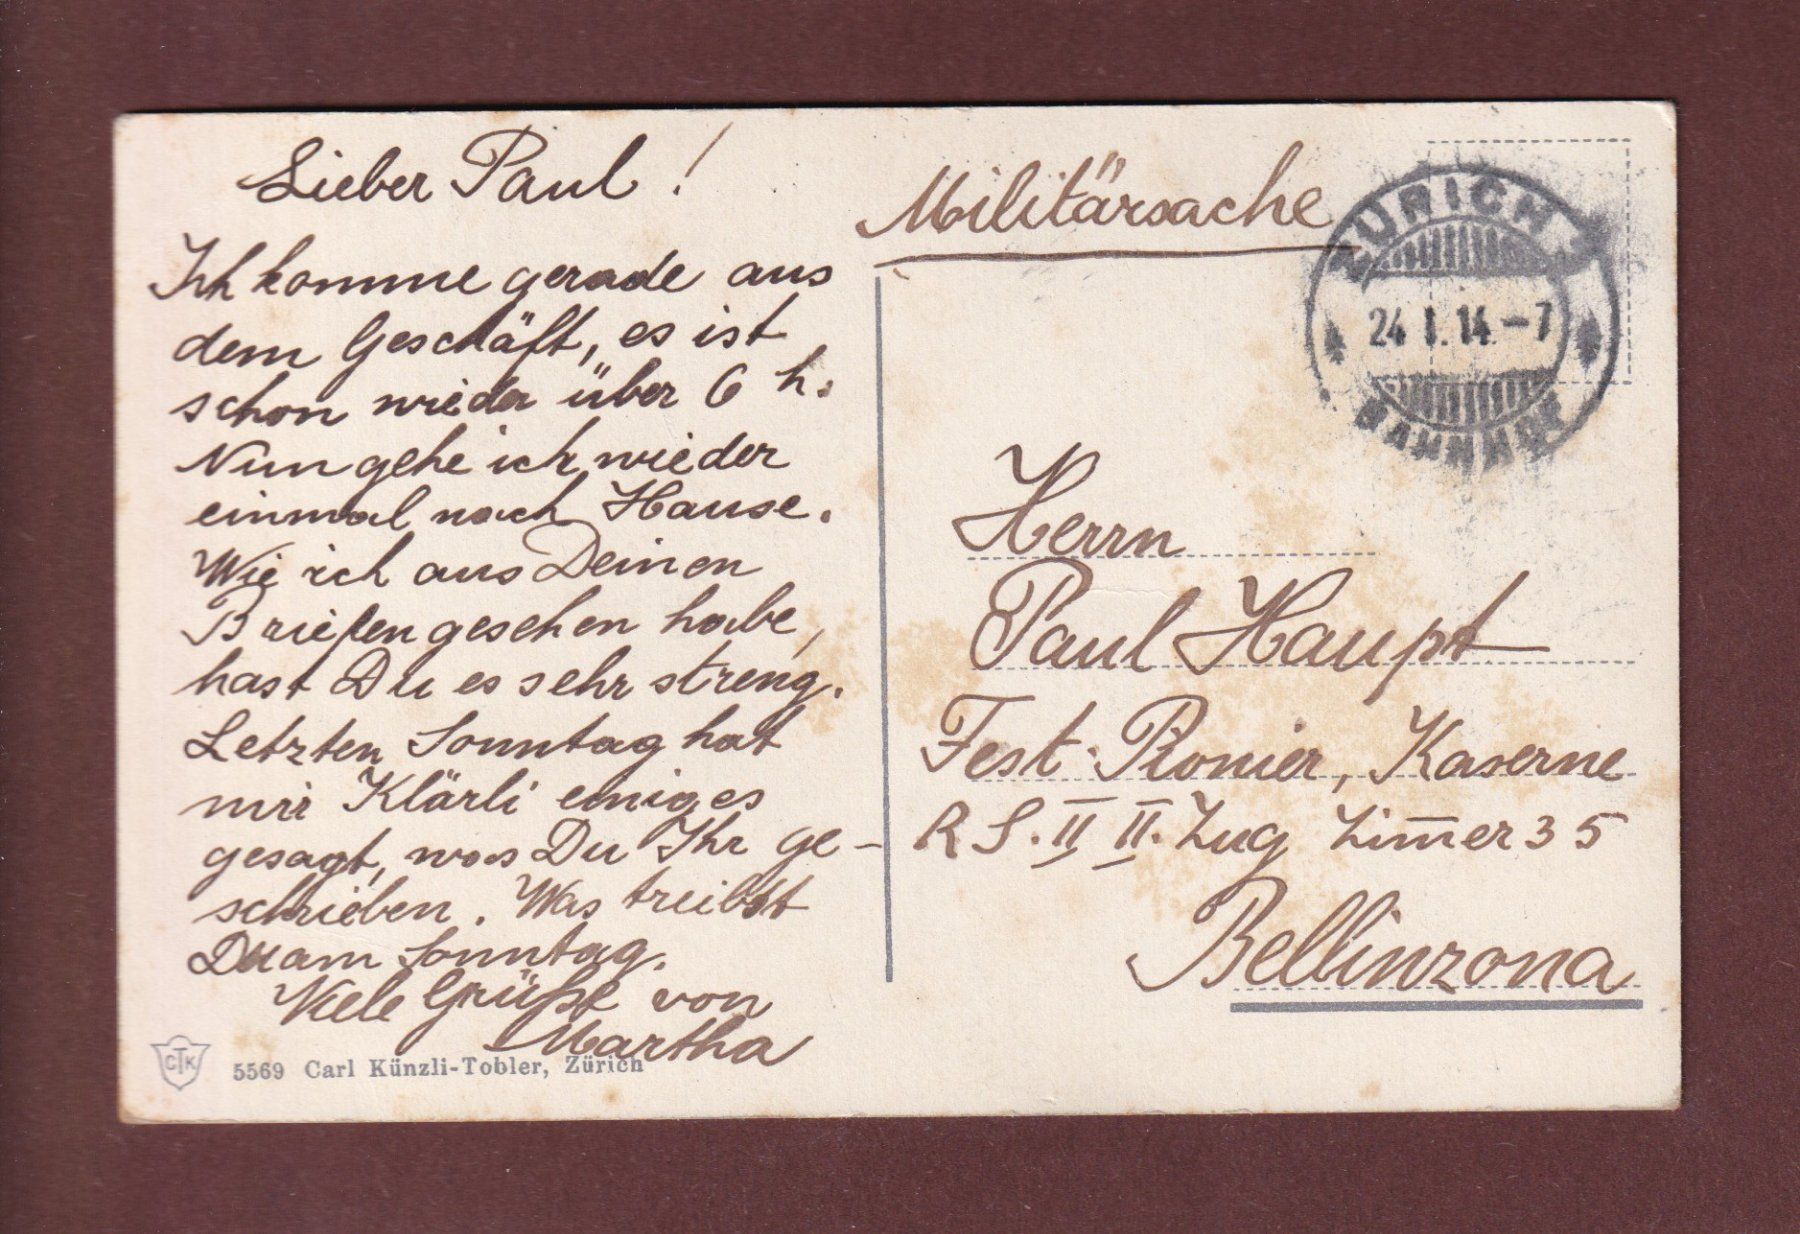 Lieber Paul!
Ich komme gerade aus
dem Geschäft, es ist
schon wieder über 6 h.
Nun gehe ich wieder
einmal nach Hause.
Wie ich aus Deinen
Briefen gesehen habe,
hast Du es sehr streng.
Letzten Sonntag hat
mir Klärli einiges
gesagt, was Du Ihr ge-
schrieben. Was treibst
Du am Sonntag.
Viele Grüße von
Martha
CTK
5569 Carl Künzli-Tobler, Zürich
Militärsache
ZÜRICH
24 I. 14.-7
BAHNHOF
Herrn
Paul Haupt
Fest. Pionier, Kaserne
R S. II II. Zug Zim̅er 35
Bellinzona